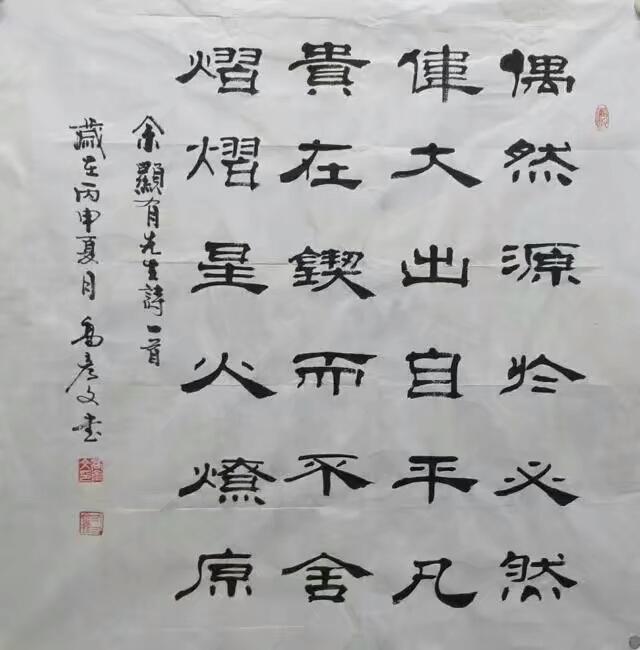 偶然源於必然
偉大出自平凡
貴在鍥而不舍
熠熠星火燎原
余顯有先生詩一首
歲在丙申夏月高彥文書